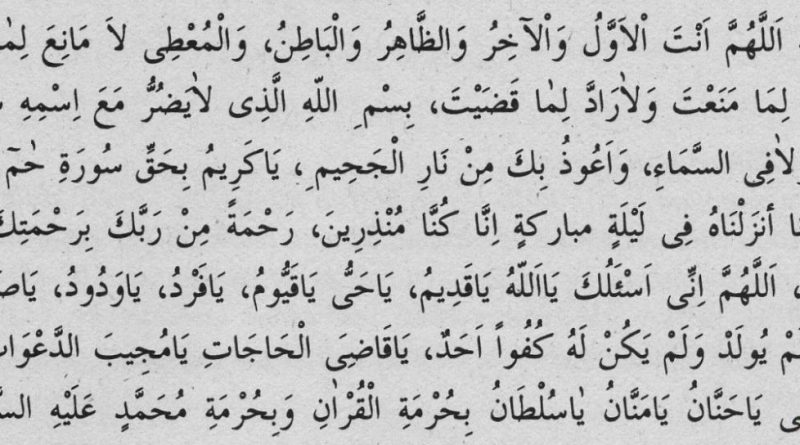 اَللَّهُمَّ اَنْتَ اْلاَوَّلُ وَاْلآخِرُ وَالظَّاهِرُ وَالْبَاطِنُ، وَالْمُعْطِى لاَ مَانِعَ
لِمَا مَنَعْتَ وَلاٰرَادَّ لِمٰا قَضَيْتَ، بِسْمِ اللّهِ الَّذِى لاٰيَضُرُّ مَعَ اِسْمِهِ
لاٰفِى السَّمَاءِ، وَاَعُوذُ بِكَ مِنْ نَارِ الْجَحِيمِ، يَاكَرِيمُ بِحَقِّ سُورَةِ حٰمٓ
أنزَلْنَاهُ فِى لَيْلَةٍ مباركةٍ اِنَّا كُنَّا مُنْذِرِينَ، رَحْمَةً مِنْ رَبَّكَ بِرَحْمَتِكَ
اَللَّهُمَّ اِنِّى اَسْئَلُكَ يَااَللّهُ يَاقَدِيمُ، يَاحَىُّ يَاقَيُّومُ، يَافَرْدُ، يَاوَدُودُ،
يُولَدْ وَلَمْ يَكُنْ لَهُ كُفُواً اَحَدٌ، يَاقَاضِىَ الْحَاجَاتِ يَامُجِيبَ
يَاحَنَّانُ يَامَنَّانُ يٰاسُلْطَانُ بِحُرْمَةِ الْقُرْاٰنِ وَبِحُرْمَةِ مُحَمَّدٍ عَلَيْهِ